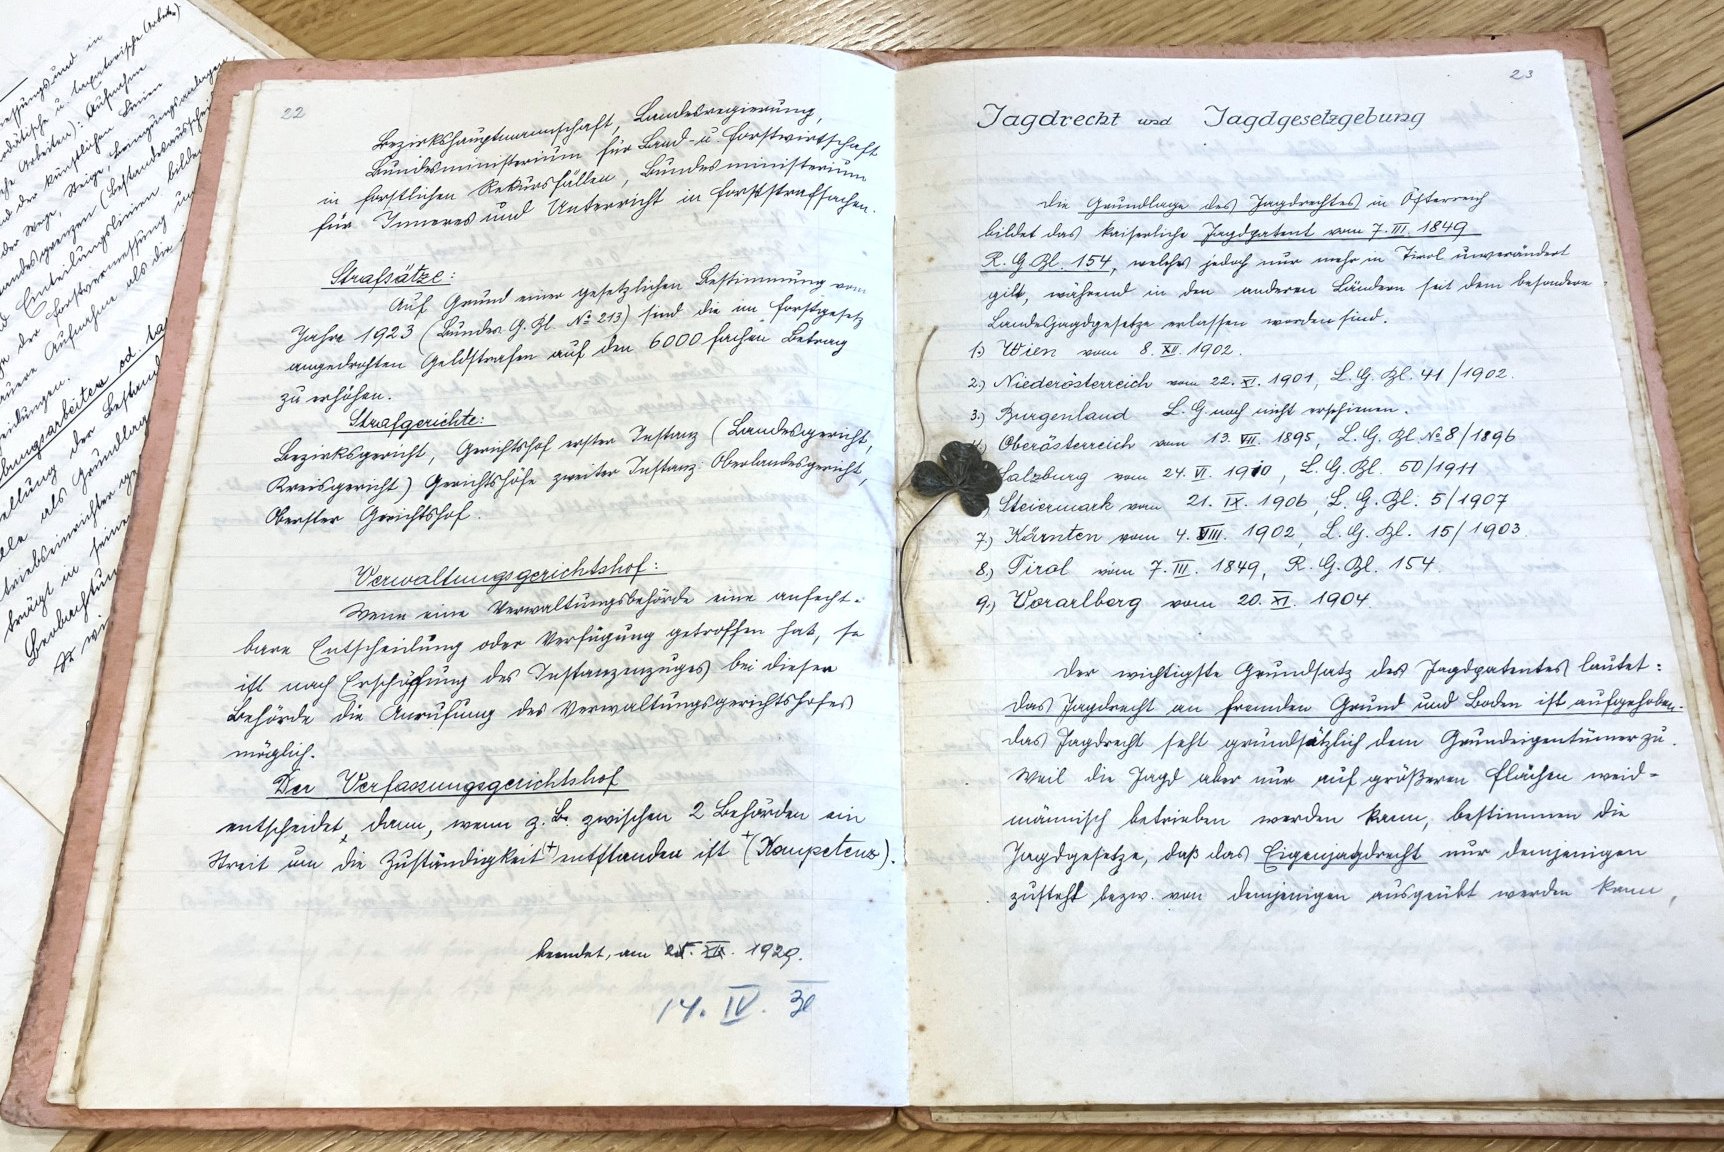 essungs und in
odätische u. tagatorische (Arbeits.)
che Arbeiten): Aufnahme
nd der künstlichen Linien
der Wege, Steige,
andesgrenzen (Bestandesausschei
d Einteilungslinien bilde
der Forstvermessung im
Aufnahme als die
eidungen.
bungsarbeiten od. ta
ellung der Bestand
lle als Grundlag
triebseinrichter
trägt in seine
Beobachtun
22
Bezirkshauptmannschaft, Landesregierung,
Bundesministerium für Land- u. Forstwirtschaft
in forstlichen Rekursfällen, Bundesministerium
für Inneres und Unterricht in Forststrafsachen.
Strafsätze:
Auf Grund einer gesetzlichen Bestimmung vom
Jahre 1923 (Bundes G. Bl. No 213) sind die im Forstgesetz
angedrohten Geldstrafen auf den 6000 fachen Betrag
zu erhöhen.
Strafgerichte:
Bezirksgericht, Gerichtshof erster Instanz (Landesgericht,
Kreisgericht) Gerichtshöfe zweiter Instanz: Oberlandesgericht,
Oberster Gerichtshof.
Verwaltungsgerichtshof:
Wenn eine Verwaltungsbehörde eine anfecht-
bare Entscheidung oder Verfügung getroffen hat, so
ist nach Erschöpfung des Instanzenzuges bei dieser
Behörde die Anrufung des Verwaltungsgerichtshofes
möglich.
Der Verfassungsgerichtshof
entscheidet, dann, wenn z. B. zwischen 2 Behörden ein
Streit um die Zuständigkeit + entstanden ist + (Kompetenz).
beendet, am 25. XII. 1929.
14. IV. 30
23
Jagdrecht und Jagdgesetzgebung
Die Grundlage des Jagdrechtes in Österreich
bildet das kaiserliche Jagdpatent vom 7. III. 1849
R. G. Bl. 154, welches jedoch nur mehr in Tirol unverändert
gilt, während in den anderen Ländern seit dem besondere
Landesjagdgesetze erlassen worden sind.
1.) Wien vom 8. XII. 1902.
2.) Niederösterreich vom 22. XI. 1901, L. G. Bl. 41/1902.
3.) Burgenland L. G. noch nicht erschienen.
4.) Oberösterreich vom 13. VII. 1895, L. G. Bl No 8/1896
Salzburg vom 24. VI. 1910, L. G. Bl. 50/1911
) Steiermark vom 21. IX. 1906, L. G. Bl. 5/1907
7.) Kärnten vom 4. VIII. 1902, L. G. Bl. 15/1903.
8.) Tirol vom 7. III. 1849, R. G. Bl. 154.
9.) Vorarlberg vom 20. XI. 1904.
Der wichtigste Grundsatz des Jagdpatentes lautet:
Das Jagdrecht an fremden Grund und Boden ist aufgehoben.
Das Jagdrecht seht grundsätzlich dem Grundeigentümer zu.
Weil die Jagd aber nur auf größeren Flächen weid-
männisch betrieben werden kann, bestimmen die
Jagdgesetze, daß das Eigenjagdrecht nur demjenigen
zusteht bezw. von demjenigen ausgeübt werden kann,